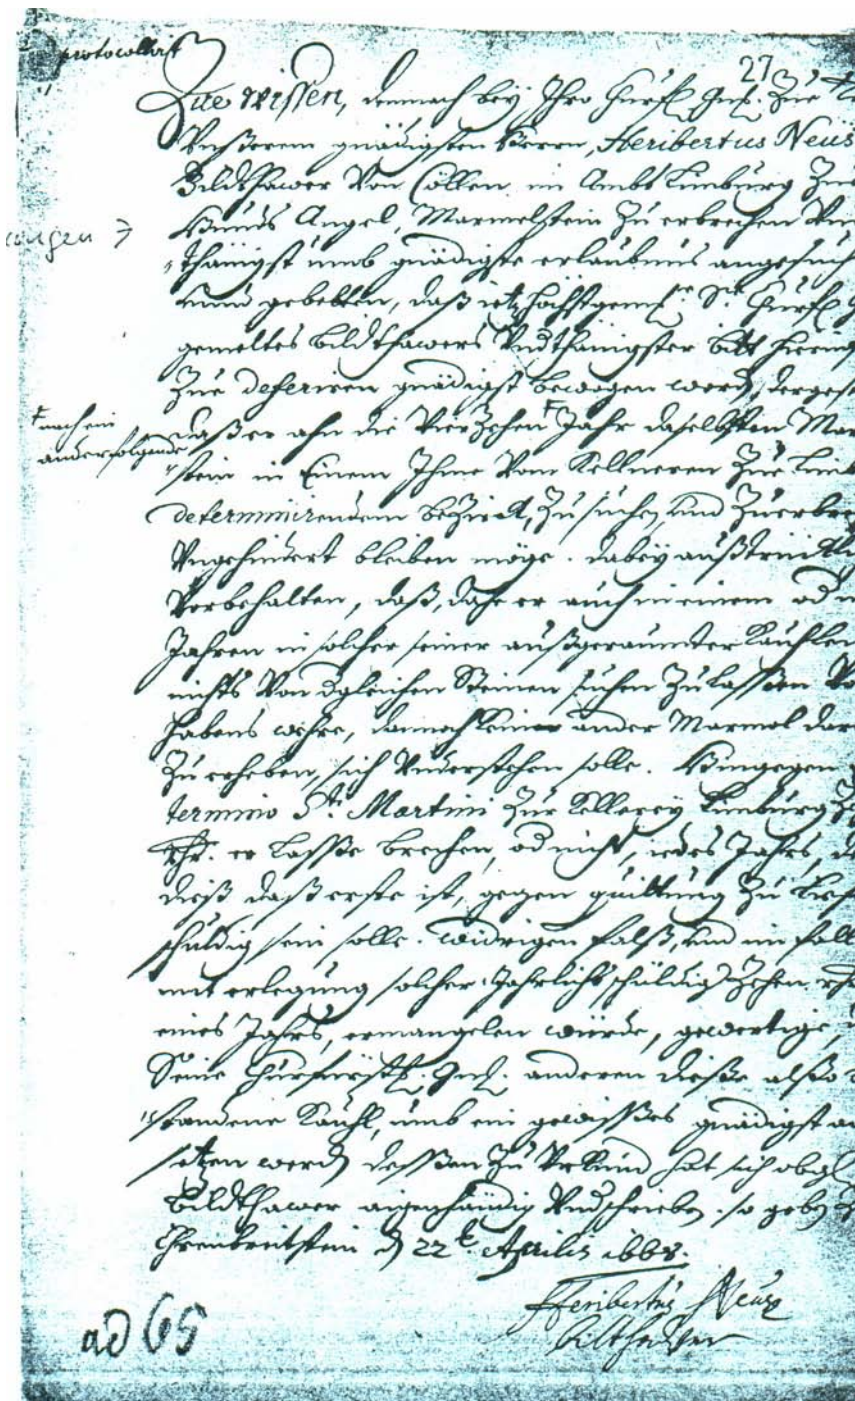 protocollirt
27
Zue wissen, demnach bey Ihro Churf. Gn. Zue
Unßerem gnädigsten Herrn, Heribertus Neüs
Bildthawer Von Cöllen im Ambt Limburg Zue
Hunds Angel, Marmelstein Zu erbrechen Un
angen
thänigst umb gnädigste erlaubnus angesuch
unnd gebetten, daß ietzhöchstgemt. Sr. Churf.
gemeltes Bildthawers Undthänigster bitt hierin
Zue deferiren gnädigst bewogen word, dergest
daß er ahn die VierZehen Jahr daselbsten Mar
nach ein
anderfolgende
stein in Einem Ihme Vom Kellneren Zue Lim
determinirendem beZirck, Zu suchen und Zuerbre
Ungehindert bleiben möge. dabey außtrücklich
Vorbehalten, daß, dahe er auch in einem od
Jahren in solcher seiner außgeraumter Kauhlen
nichts Von dgleichen Steinen suchen Zu lassen Vor
habens wehre, dannoch keiner ander Marmel dar
Zu erheben, sich Understehen solle. Hingegen
termino Sti. Martini Zur Kellerey Limburg Ze
thr. er lasse brechen, od nicht, iedes Jahrs,
dieß daß erste ist, gegen quittung Zu lief
schuldig sein solle. widrigen falß, und im fall
mit erlegung solcher Jahrlichs schuldig Zehen
eines Jahrs, ermangelen würde, gewertige,
Seine Churfürstl. Gn. anderen dieße alßo
standene Kauhl, umb ein gewisses gnädigst
setzen werd dessen Zu Urkund hat sich obgl
Bildthawer aigenhändig Undschrieben. so geben
Ehrenbreitstein d 22t Aprilis 1668.
Heribertus Neus
bilthauer
ad 65